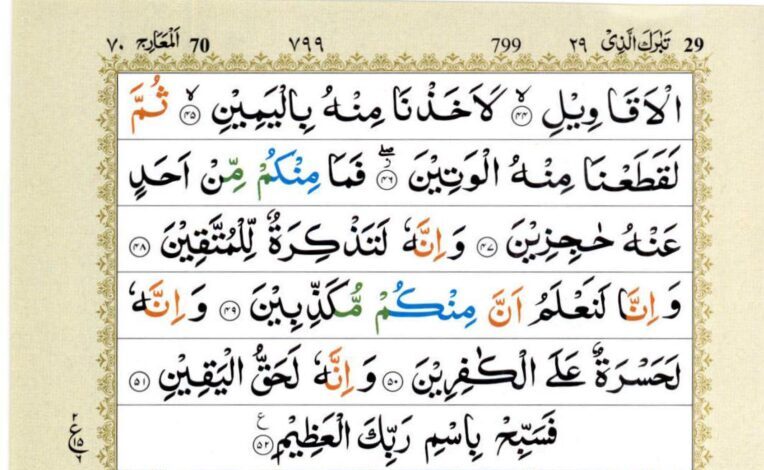 29 تَبٰرَكَ الَّذِیْ ۲۹ 799 ۷۹۹ 70 اَلْمَعَارِج ۷۰
الْاَقَاوِیْلِ ۙ﴿۴۴﴾ لَاَخَذْنَا مِنْهُ بِالْیَمِیْنِ ۙ﴿۴۵﴾ ثُمَّ
لَقَطَعْنَا مِنْهُ الْوَتِیْنَ ۖ﴿۴۶﴾ فَمَا مِنْكُمْ مِّنْ اَحَدٍ
عَنْهُ حٰجِزِیْنَ ﴿۴۷﴾ وَ اِنَّهٗ لَتَذْكِرَةٌ لِّلْمُتَّقِیْنَ ﴿۴۸﴾
وَ اِنَّا لَنَعْلَمُ اَنَّ مِنْكُمْ مُّكَذِّبِیْنَ ﴿۴۹﴾ وَ اِنَّهٗ
لَحَسْرَةٌ عَلَی الْكٰفِرِیْنَ ﴿۵۰﴾ وَ اِنَّهٗ لَحَقُّ الْیَقِیْنِ ﴿۵۱﴾
فَسَبِّحْ بِاسْمِ رَبِّكَ الْعَظِیْمِ ﴿۵۲﴾ ع
۲
ع ۱۵
۶